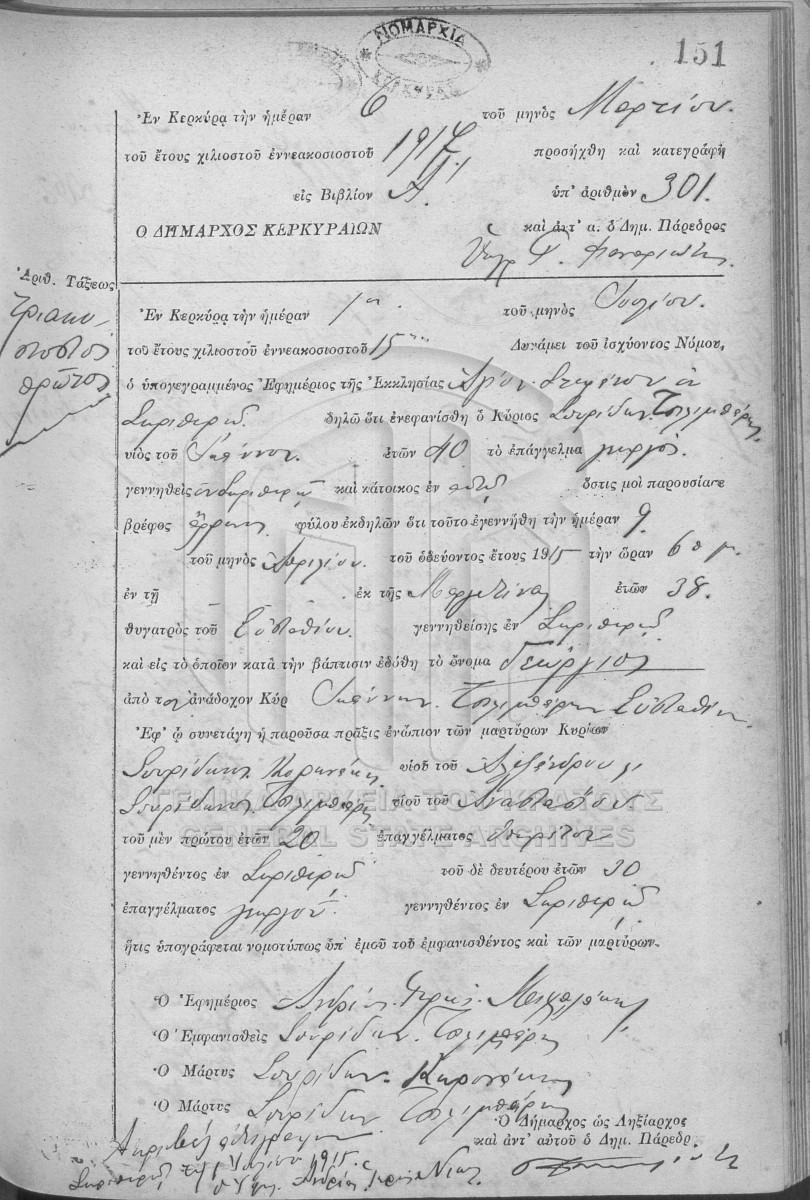 ΝΟΜΑΡΧΙΑ
ΚΕΡΚΥΡΑΣ
151
Ἐν Κερκύρᾳ τὴν ἡμέραν 6 τοῦ μηνὸς Μαρτίου.
τοῦ ἔτους χιλιοστοῦ ἐννεακοσιοστοῦ 1917 προσήχθη καὶ κατεγράφη
εἰς Βιβλίον Α. ὑπ' ἀριθμὸν 301.
Ο ΔΗΜΑΡΧΟΣ ΚΕΡΚΥΡΑΙΩΝ καὶ ἀντ' α. ὁ Δημ. Πάρεδρος
Φαναριώτης
Ἀριθ. Τάξεως
Τριακο
στοστος
πρῶτος
Ἐν Κερκύρᾳ τὴν ἡμέραν 1ην τοῦ μηνὸς Ἰουλίου.
τοῦ ἔτους χιλιοστοῦ ἐννεακοσιοστοῦ 15 Δυνάμει τοῦ ἰσχύοντος Νόμου,
ὁ ὑπογεγραμμένος Ἐφημέριος τῆς Ἐκκλησίας Στεφάνου
Σκριπεροῦ δηλῶ ὅτι ἐνεφανίσθη ὁ Κύριος Σπυρίδων
υἱὸς τοῦ Ἰωάννου. ἐτῶν 40 τὸ ἐπάγγελμα γεωργός.
γεννηθεὶς ἐν Σκριπερῷ καὶ κάτοικος ἐν αὐτῷ ὅστις μοὶ παρουσίασε
βρέφος ἄρρεν φύλου ἐκδηλῶν ὅτι τοῦτο ἐγεννήθη τὴν ἡμέραν 9
τοῦ μηνὸς Ἀπριλίου. τοῦ ὁδεύοντος ἔτους 1915 τὴν ὥραν 6 π μ.
ἐν τῇ ἐκ τῆς ἐτῶν 38.
θυγατρὸς τοῦ Εὐσταθίου. γεννηθείσης ἐν Σκριπερῷ
καὶ εἰς τὸ ὁποῖον κατὰ τὴν βάπτισιν ἐδόθη τὸ ὄνομα Γεώργιος
ἀπὸ τον ἀνάδοχον Κύρ Ἰωάννην Εὐσταθίου
Ἐφ' ᾧ συνετάγη ἡ παροῦσα πρᾶξις ἐνώπιον τῶν μαρτύρων Κυρίων
Σπυρίδωνος υἱοῦ τοῦ Ἀλεξάνδρου
ΓΕΝΙΚΑ ΑΡΧΕΙΑ ΤΟΥ ΚΡΑΤΟΥΣ
Σπυρίδωνος υἱοῦ τοῦ Ἀναστασίου
GENERAL STATE ARCHIVES
τοῦ μὲν πρώτου ἐτῶν 20 ἐπαγγέλματος
γεννηθέντος ἐν Σκριπερῷ τοῦ δὲ δευτέρου ἐτῶν 30
ἐπαγγέλματος γεωργοῦ. γεννηθέντος ἐν Σκριπερῷ
ἥτις ὑπογράφεται νομοτύπως ὑπ' ἐμοῦ τοῦ ἐμφανισθέντος καὶ τῶν μαρτύρων.
Ὁ Ἐφημέριος Ἀνδρέας
Ὁ Ἐμφανισθεὶς Σπυρίδων
Ὁ Μάρτυς Σπυρίδων
Ὁ Μάρτυς Σπυρίδων
Ὁ Δήμαρχος ὡς Ληξίαρχος
καὶ ἀντ' αὐτοῦ ὁ Δημ. Πάρεδρ.
Ἰουλίου 1915.